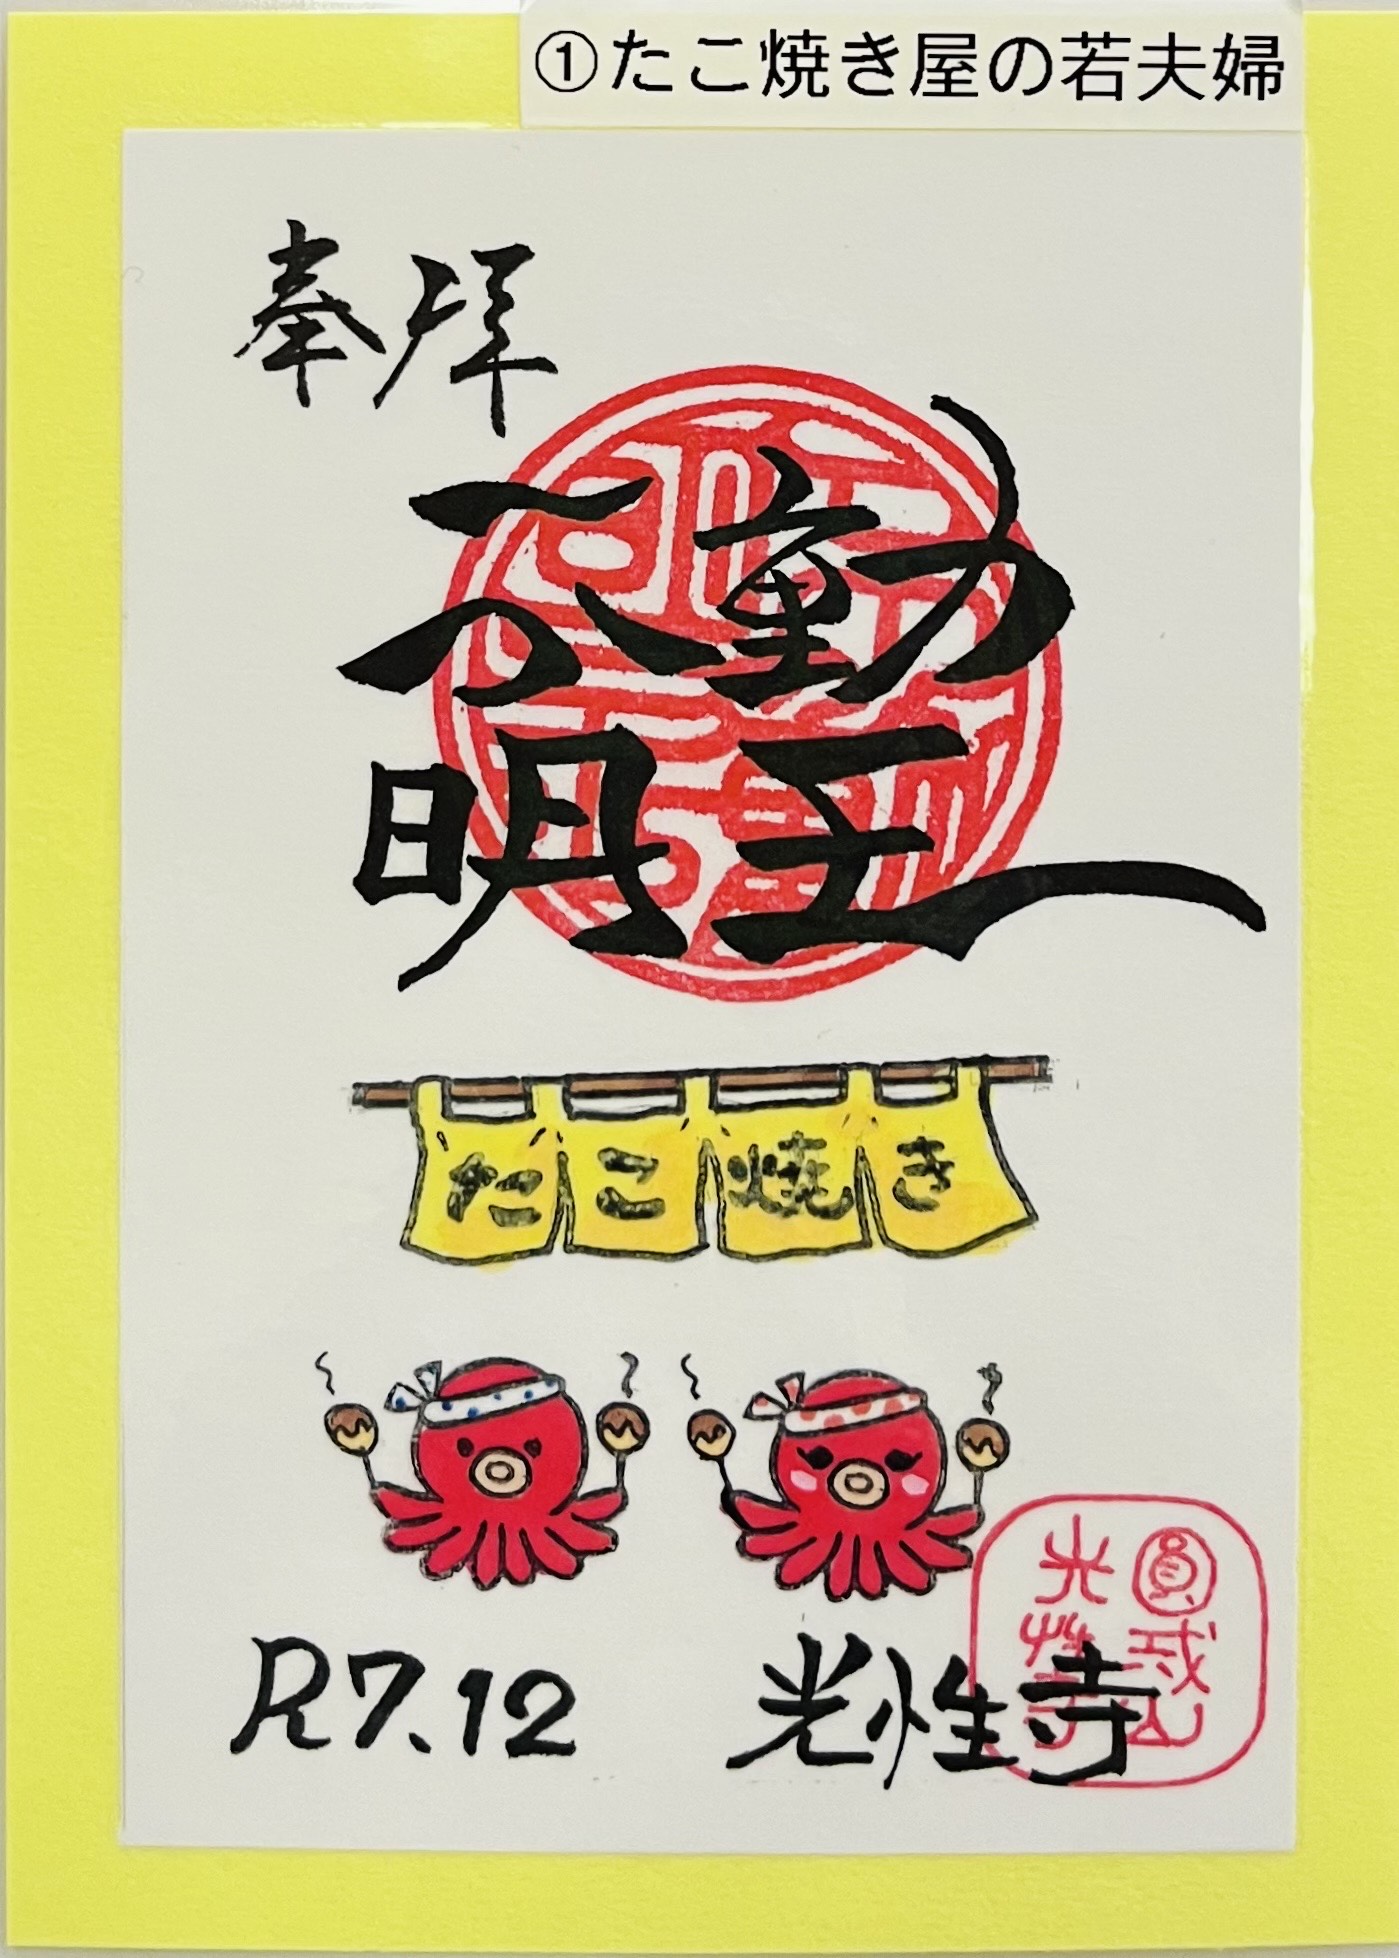 ①たこ焼き屋の若夫婦
奉拝
不動
明王
たこ焼き
R7.12
光性寺